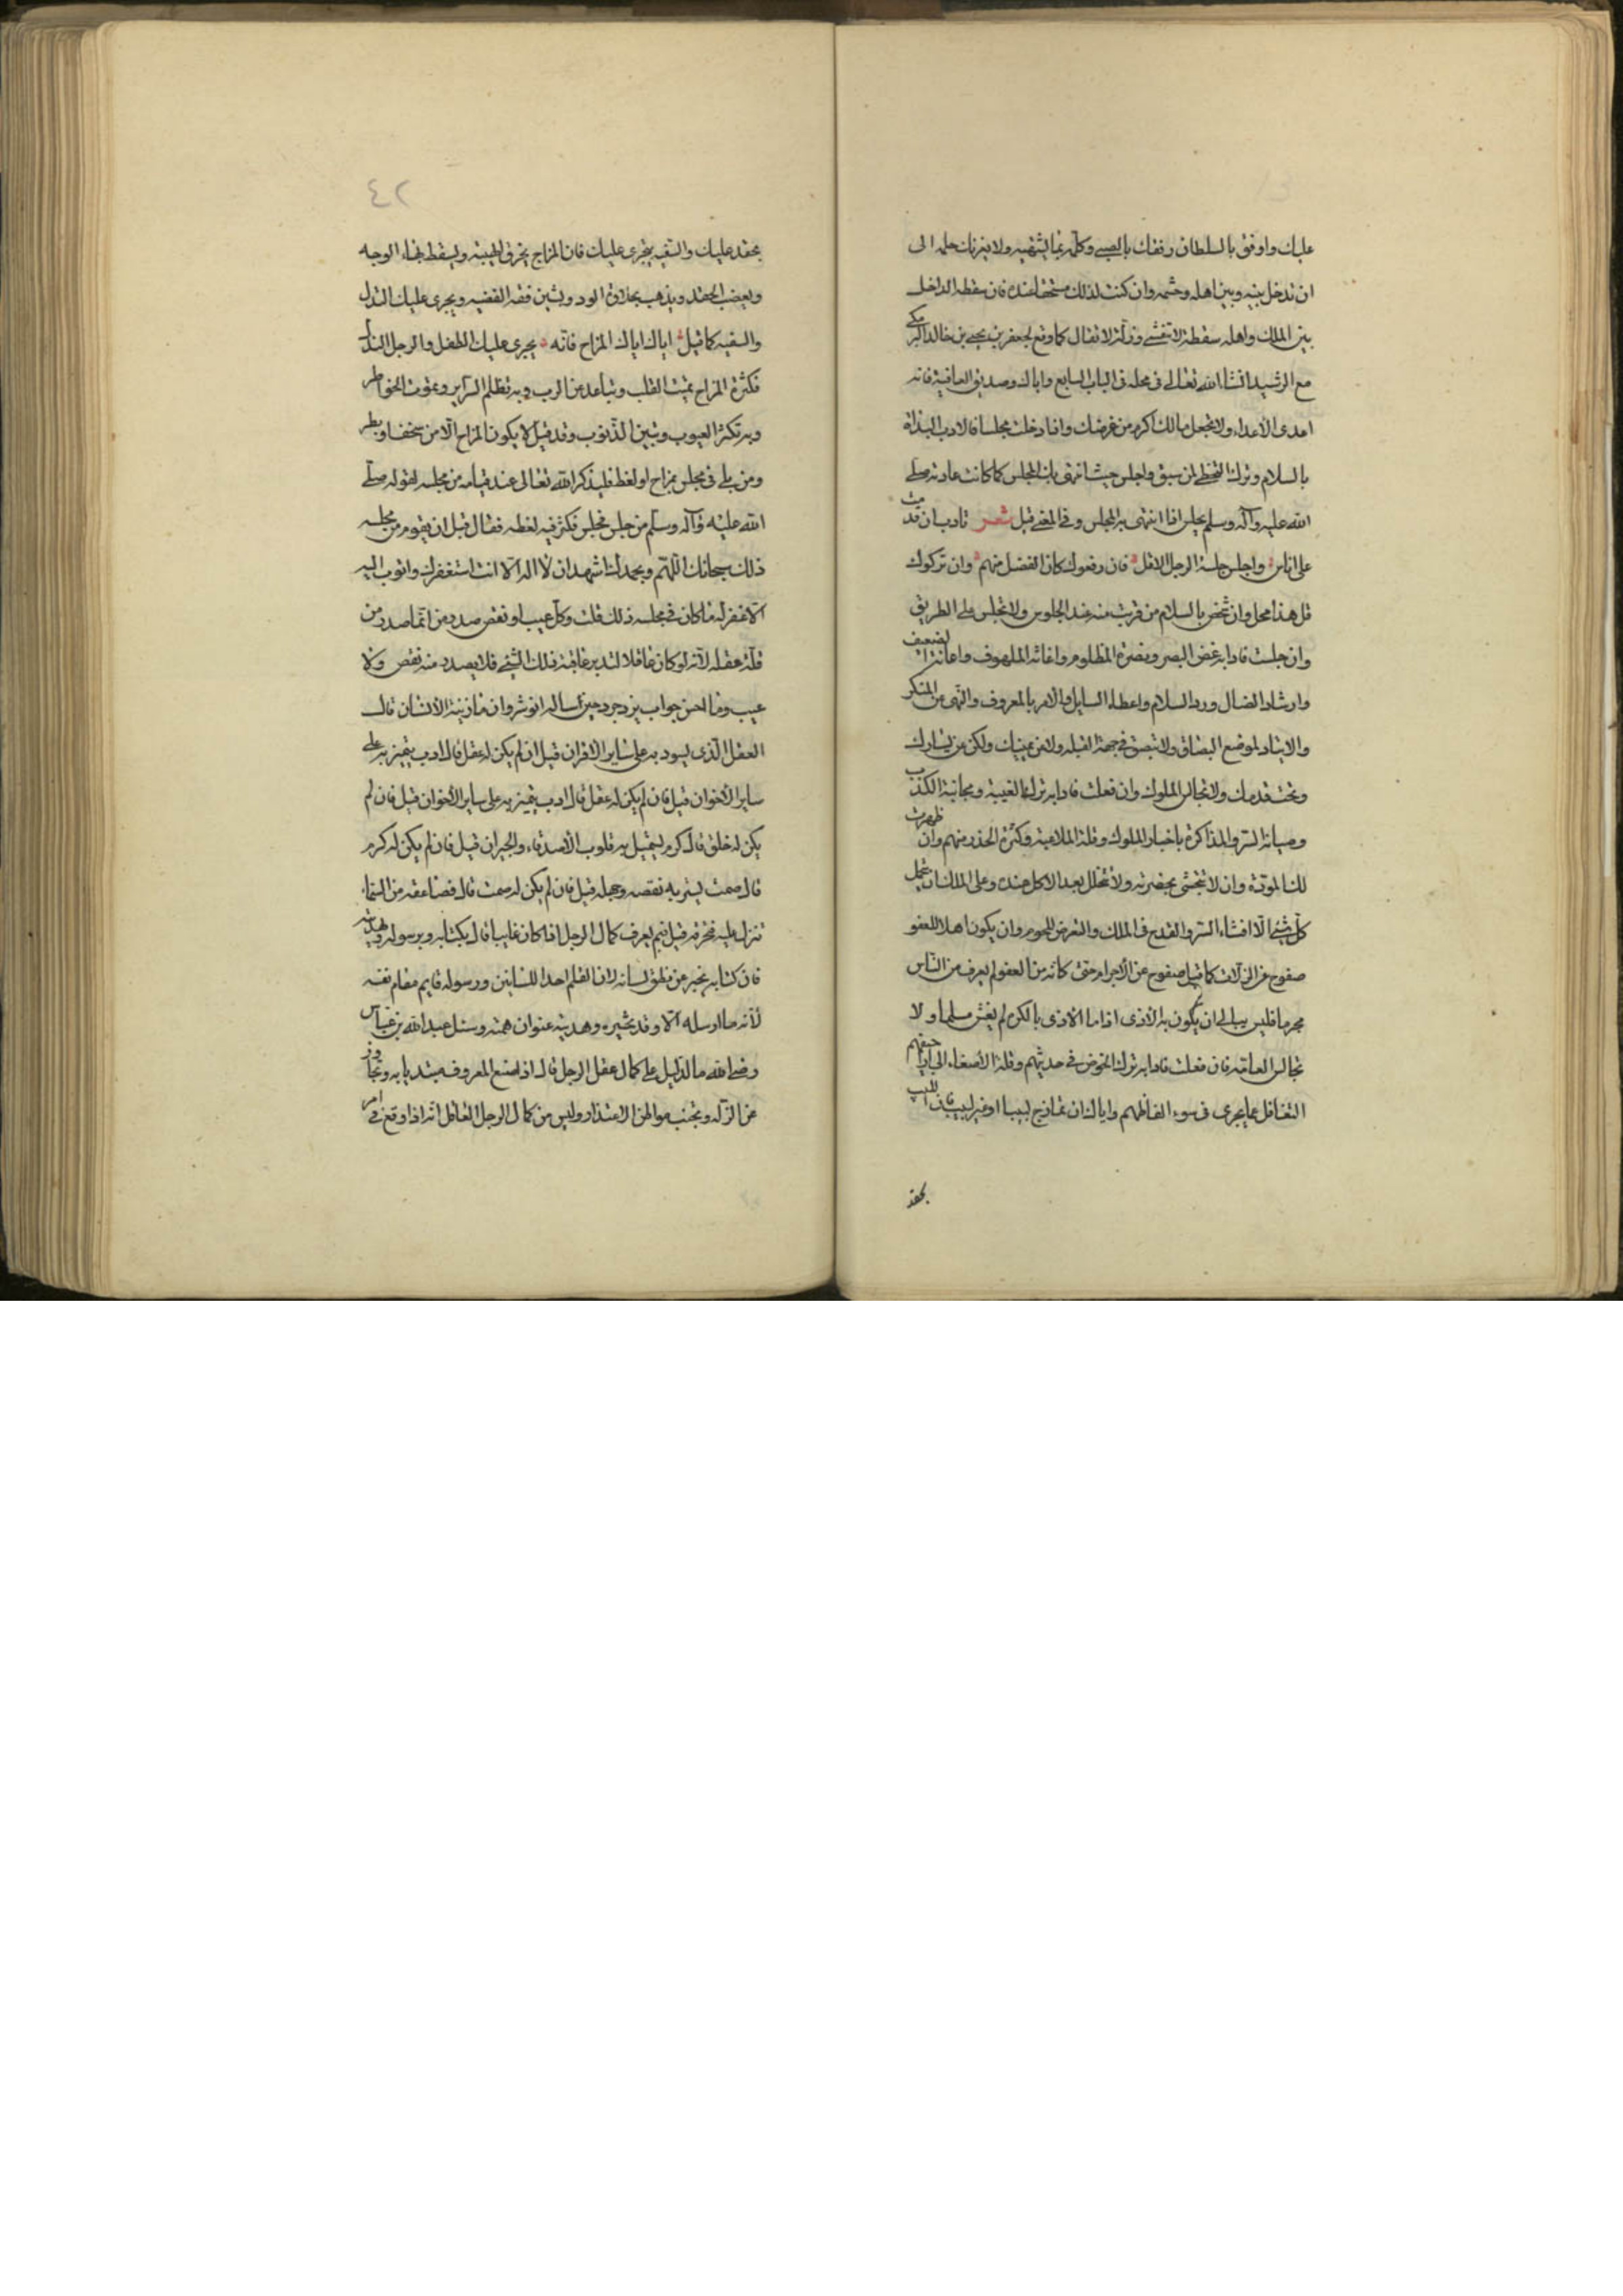 عليك واوفق بالسلطان رفقك بالصبي وكلمه بما يشتهيه ولا يغرنك حلمه الى
ان تدخل بينه وبين اهله وحشمه وان كنت لذلك مستحقا عنده فان سقطه الداخل
بين الملك واهله سقطة لا تنعش وزلة لا تقال كما وقع لجعفر بن يحيى بن خالد البرمكي
مع الرشيد انشا الله تعالى في محله في الباب السابع واياك وصديق العافية فانه
اعدى الأعداء ولا تجعل مالك اكرم من عرضك واذا دخلت مجلسا فالادب البداة
بالسلام وترك التخطي لمن سبق واجلس حيث انتهى بك المجلس كما كانت عادته صلى
الله عليه وآله وسلم يجلس اذا انتهى به المجلس وفي المغني قيل شعر تادب ان قدمت
على اناس واجلس جلسة الرجل الاقل فان رفعوك كان الفضل منهم وان تركوك
قل هذا محل وان تخص بالسلام من قربت منه عند الجلوس ولا تجلس على الطريق
وان جلست فادابه غض البصر ونصرة المظلوم واغاثه الملهوف واعانة الضعيف
وارشاد الضال ورد السلام واعطاء السايل والامر بالمعروف والنهى عن المنكر
والارتياد لموضع البصاق ولا تبصق في جهة القبله ولا عن يمينك ولكن عن يسارك
وتحت قدمك ولا تجالس الملوك وان فعلت فادابه ترك الغيبة ومجانبة الكذب
وصيانة السر والمذاكرة باخبار الملوك وقلة الملاعبة وكثرة الحذر منهم وان ظهرت
لك المودة وان لا تتجشى بحضرته ولا تتخلل بعد الاكل عنده وعلى الملك ان يتحمل
كل شئ الا افشاء السر والقدح في الملك والتعرض للحوم وان يكون اهلا للعفو
صفوح عن الزلات كما قيل صفوح عن الأجرام حتى كانه من العفو لم يعرف من الناس
مجرما فليس يبالي ان يكون به الأذى اذا ما الاذى بالكره لم يغش مسلما ولا
تجالس العامة فان فعلت فادابه ترك الخوض في حديثهم وقلة الأصغاء الى اراجيفهم
التغافل عما يجرى في سوء الفاظهم واياك ان تمازح لبيبا او غير لبيب فان اللبيب
يحقد
٤٢
يحقد عليك والسفيه يجترى عليك فان المزاح يخرق الهيبة ويسقط بهاء الوجه
ويعقب الحقد ويذهب بحلاوة الود ويشين فقه الفقيه ويجرى عليك النذل
والسفيه كما قيل اياك اياك المزاح فانه يجرى عليك الطفل والرجل النذل
فكثرة المزاح تميت القلب وتباعد عن الرب وبه تظلم السراير وتموت الخواطر
وبه تكثر العيوب وتبين الذنوب وقد قيل لا يكون المزاح الا من سخف او بطر
ومن بلى في مجلس بمزاح او لغط فليذكر الله تعالى عند قيامه من مجلسه لقوله صلى
الله عليه وآله وسلم من جلس مجلس فكثر فيه لغطه فقال قبل ان يقوم من مجلسه
ذلك سبحانك اللهم وبحمدك اشهد ان لا اله الا انت استغفرك واتوب اليه
الا غفر له ما كان في مجلسه ذلك قلت وكل عيب او نقص صدر من انما صدر من
قلة عقله لانه لو كان عاقلا لتدبر عاقبة ذلك الشئ فلا يصدر منه نقص ولا
عيب وما احسن جواب يزدجرد حين ساله انوشروان ما زينة الأنسان قال
العقل الذى يسود به على ساير الاقران قيل ان لم يكن له عقل قال ادب يتميز به على
ساير الأخوان قيل فان لم يكن له عقل قال ادب يتميز به على ساير الأخوان قيل فان لم
يكن له خلق قال كرم يستميل به قلوب الأصدقاء والجيران قيل فان لم يكن له كرم
قال صمت يستر به نقصه وجهله قيل فان لم يكن له صمت قال فصاعقه من السماء
تنزل عليه فتحرقه قيل فبم يعرف كمال الرجل اذا كان غايبا قال بكتابه وبرسوله وهديته
فان كتابه يخبر عن منطق لسانه لان القلم احد اللسانين ورسوله قايم مقام نفسه
لأنه ما ارسله الا وقد تخيره وهديته عنوان همته وسئل عبد الله بن عباس
رضى الله ما الدليل على كمال عقل الرجل قال اذا صنع المعروف مبتديا به وتجاوز
عن الزلة وتجنب مواطن الاعتذار وليس من كمال الرجل العاقل انه اذا وقع في امر